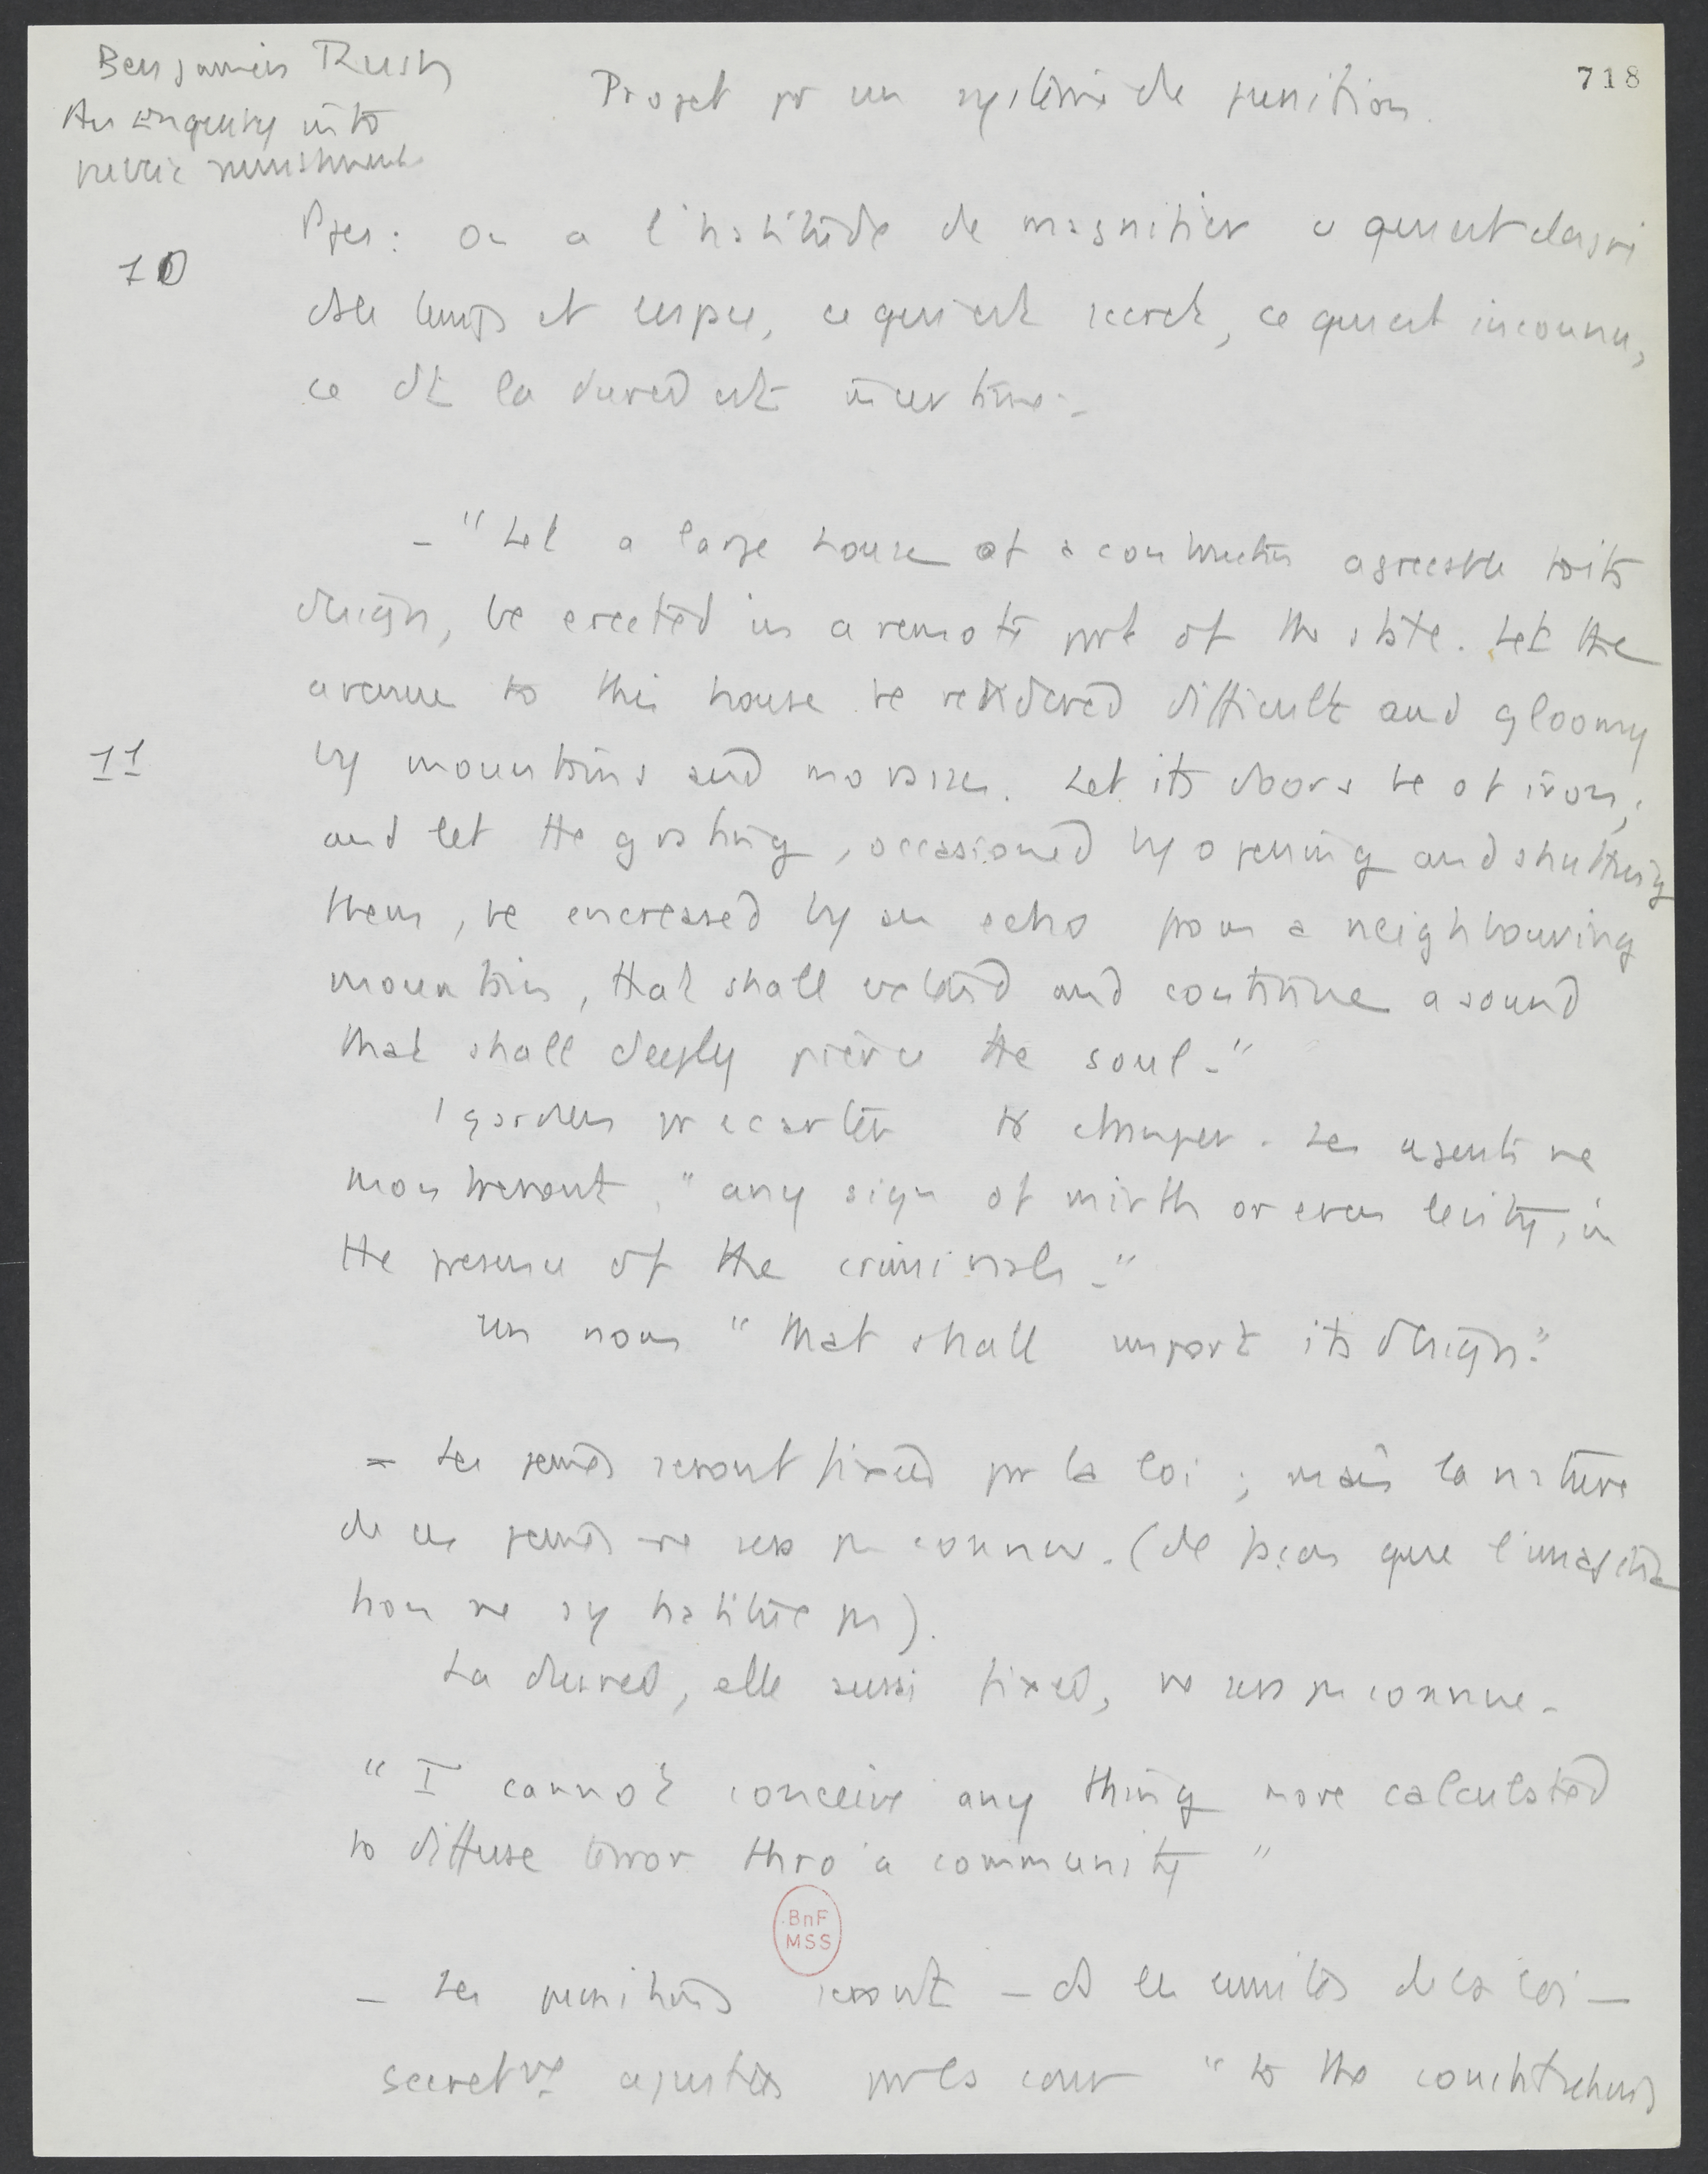 Benjamin Rush
An enquiry into
public punishments
718
Projet pr un système de punition.
10
Ppes : on a l'habitude de magnifier ce qui est éloigné
ds le temps et l'espace, ce qui est secret, ce qui est inconnu,
ce dt la durée est incertaine.
– "Let a large house of a construction agreeable to its
design, be erected in a remote part of the state. Let the
avenue to this house be rendered difficult and gloomy
11
by mountains and morasses. Let its doors be of iron;
and let the grating, occasioned by opening and shutting
them, be encreased by an echo from a neighbouring
mountain, that shall extend and continue a sound
that shall deeply pierce the soul."
1 gardien pr écarter ts étranger. Les agents ne
montreront "any sign of mirth or even levity, in
the presence of the criminals."
un nom "that shall import its design."
– Les peines seront fixées par la loi ; mais la nature
de ces peines ne sera pas connue. (de façon que l'imagina
tion ne s'y habitue pas).
La durée, elle aussi fixée, ne sera pas connue.
"I cannot conceive any thing more calculated
to diffuse terror thro' a community"
BnF
MSS
– Les punitions seront – ds les limites de la loi –
secretvt ajustées par la cour "to the constitutions